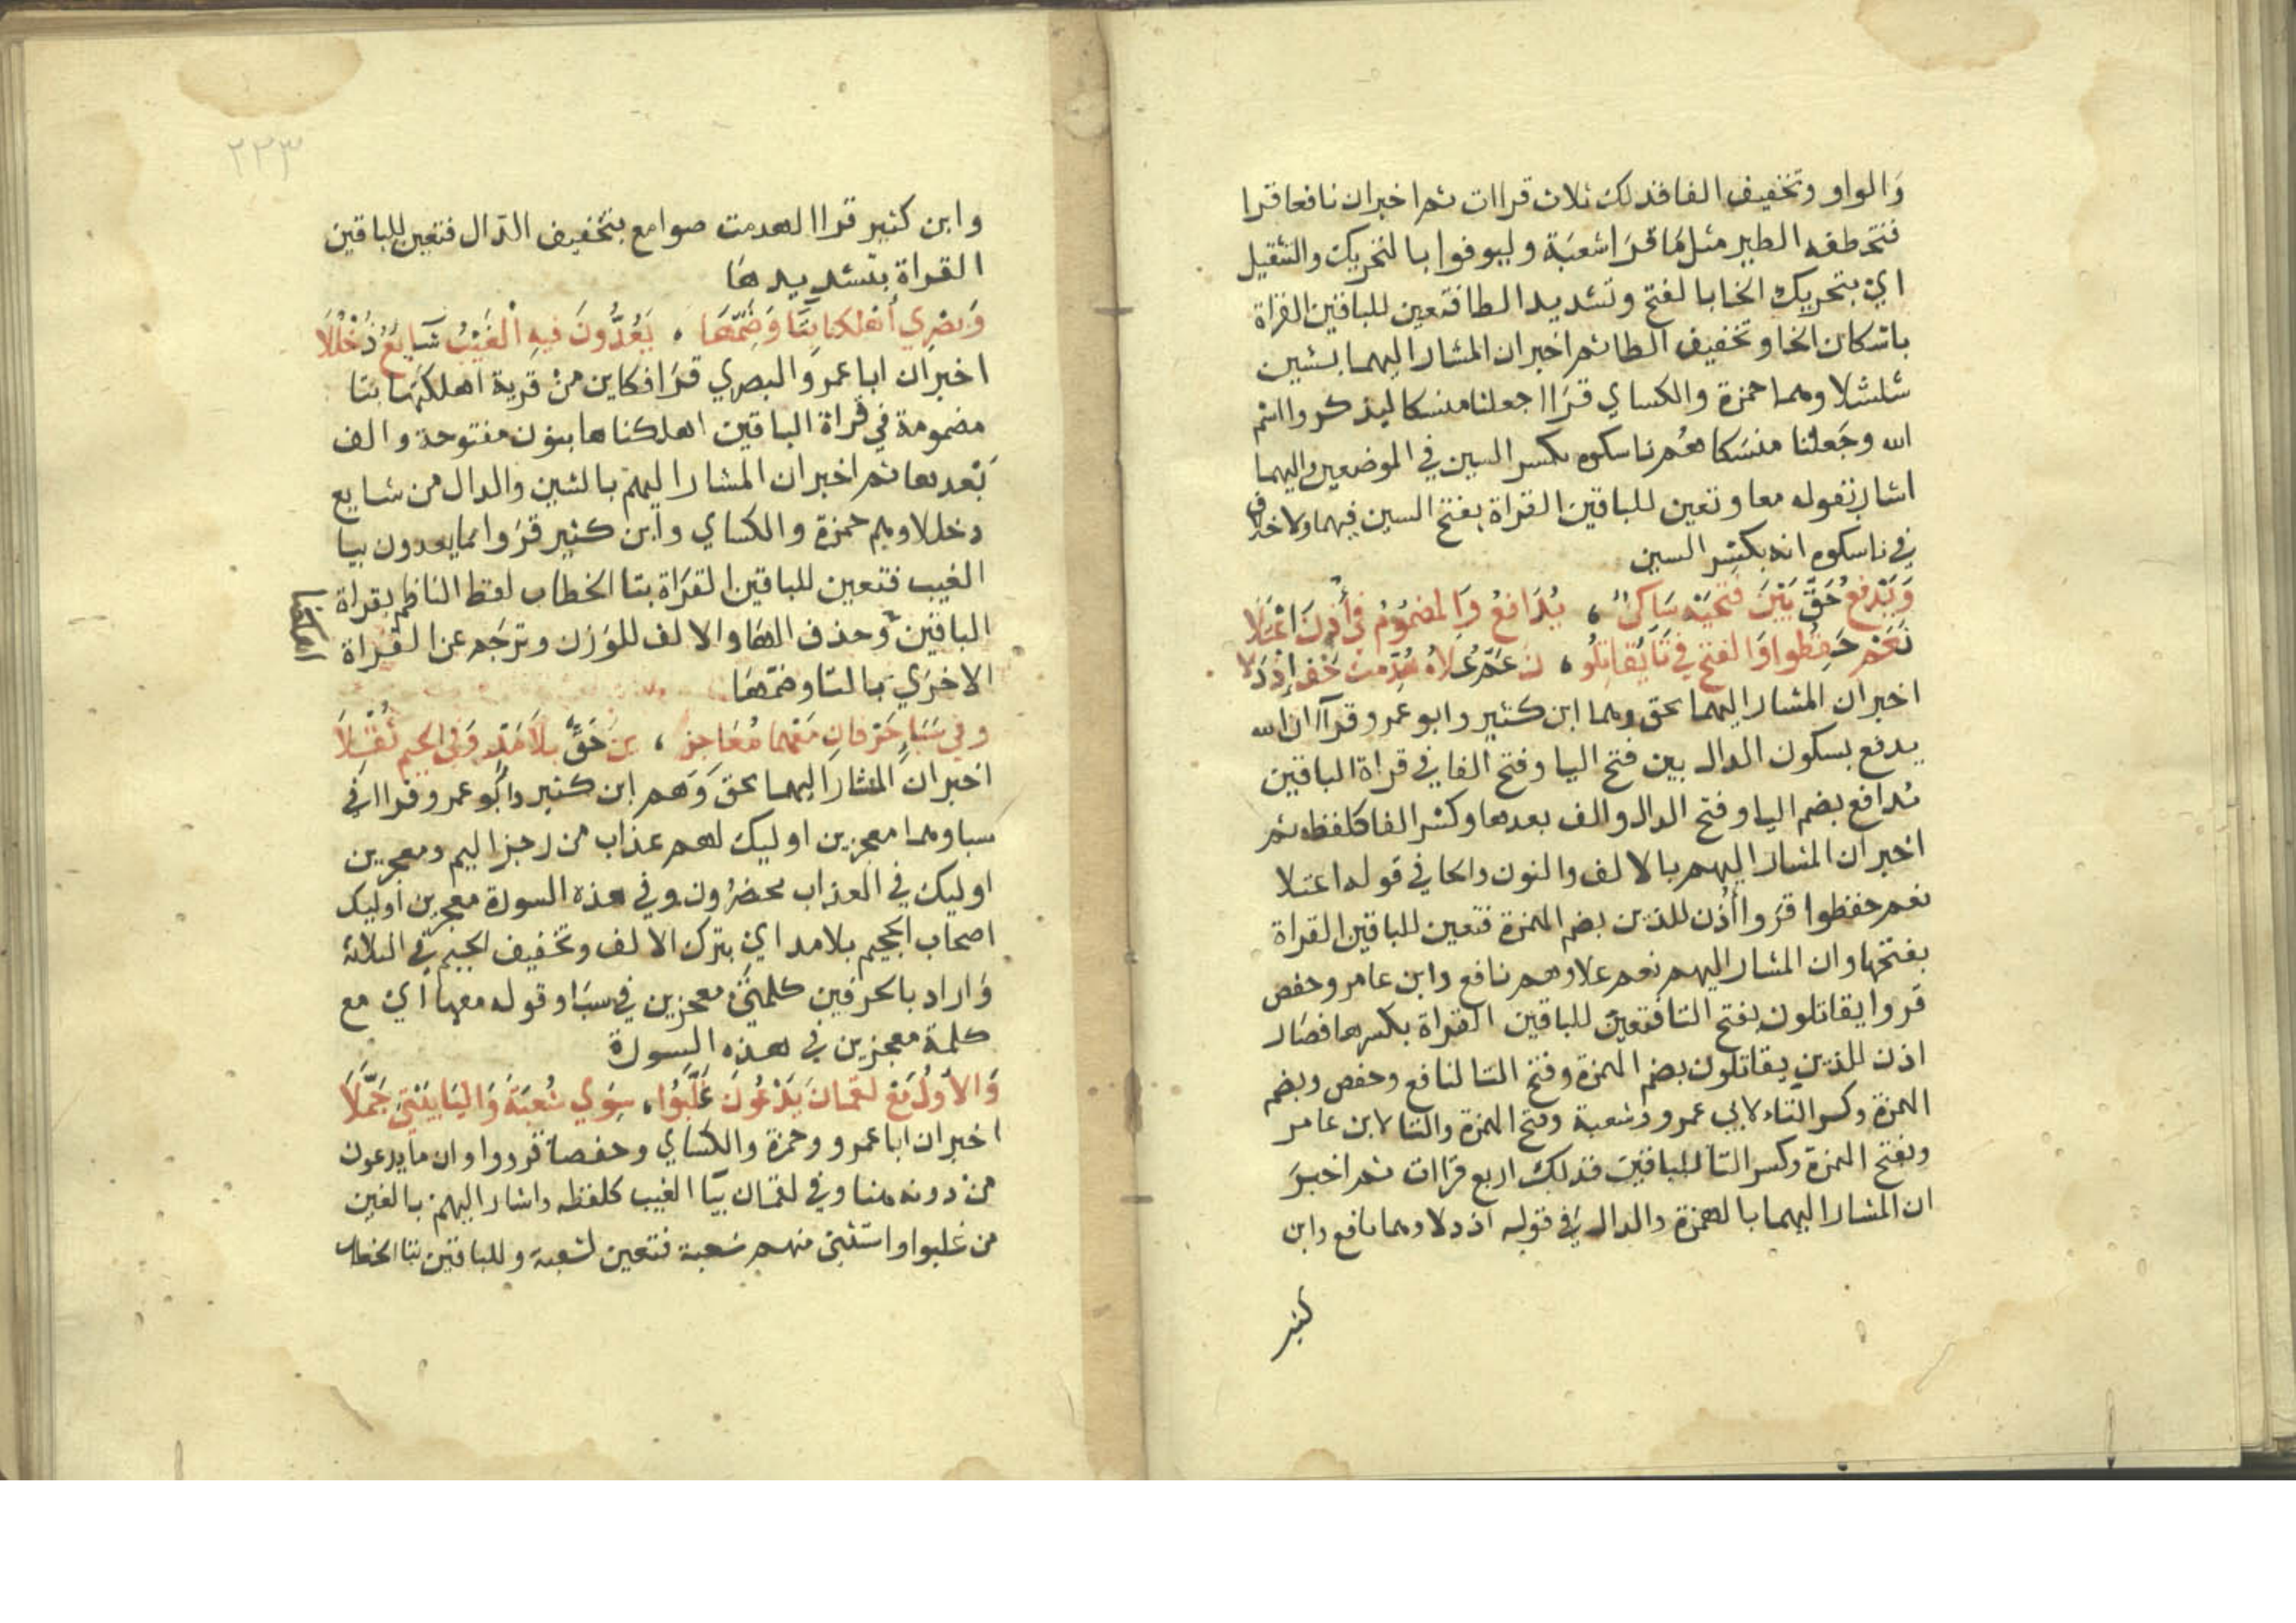 وَالواو وتخفيف الفا فذلك ثلاث قراات ثم اخبر ان نافعا قرا
فتخطفه الطير مثل مَا قرَا شعبَة وليوفوا بالتحريك والتثقيل
اي بتحريك الخا بالفتح وتشديد الطا فتعين للباقين القراة
باسكان الخا وتخفيف الطا ثم اخبر ان المشار اليهما بشين
شلشلا وهما حمزة والكساي قرَاا جعلنا منسكا ليذكروا اسم
الله وجَعلنا منسَكا هُم ناسكوه بكسر السين في الموضعين واليهما
اشار بقوله معا وتعين للباقين القراة بفتح السين فيهما ولا خلاف
في ناسكوه انه بكسر السين
وَيَدْفَعُ حَقٌّ بَيْنَ فَتْحَيْهِ سَاكِنٌ ، يُدَافِعُ وَالمضمُومُ في أُذِنَ اعْتَلَا
نَعَمْ حَفِظُوا وَالفتح في تَا يُقَاتِلُو ، نَ عَمَّ عُلَاهُ هُدِّمَتْ خَفَّ إذ دَلَا
اخبر ان المشار اليهما بحق وهما ابن كثير وابو عمرو قرآ ان الله
يدفع بسكون الدال بين فتح اليا وفتح الفا في قراة الباقين
يُدافع بضم اليا وفتح الدال والف بعدها وكسر الفا كلفظه ثم
اخبر ان المشار اليهم بالالف والنون والحا في قوله اعتلا
نعم حفظوا قرَوا أُذن للذين بضم الهمزة فتعين للباقين القراة
بفتحها وان المشار اليهم نعم علا وهم نافع وابن عامر وحفص
قروا يقاتلون بفتح التا فتعين للباقين القراة بكسرها فصَار
اذن للذين يقاتلون بضم الهمزة وفتح التا لنافع وحفص وبضم
الهمزة وكسر التاء لابي عمرو وشعبة وفتح الهمزة والتا لابن عامر
وبفتح الهمزة وكسر التا للباقين فذلك اربع قراات ثم اخبرَ
ان المشار اليهما بالهمزة والدال في قوله اذ دلا وهما نافع وابن
كثير
٢٢٣
وابن كثير قراا لهدمت صوامع بتخفيف الدّال فتعين للباقين
القراة بتشديدهَا
وَبَصْرِي أَهْلكنا بِتَا وَضَمِّهَا ، يَعُدُّونَ فيهِ الْغَيْبُ شَايَعَ دُخْلُلَا
اخبر ان ابا عمرو البصري قرَا فكاين من قرية اهلكتُها بتا
مضمومة في قراة الباقين اهلكناها بنون مفتوحة والف
بَعدها ثم اخبر ان المشار اليهم بالشين والدال من شايع
دخللا وهم حمزة والكساي وابن كثير قرَوا مما يعدون بيا
الغيب فتعين للباقين القرَاة بتا الخطاب لفظ الناظم بقراة
الباقين وحذف الهَا والالف للوَزن وترجَم عن القراة
الاخرَي بالتا وضمّهَا
وفي سَبَإٍ حَرْفَانِ مَعْهَا مُعَاجِزِ ، ينَ حَقٌّ بِلَا مَدٍّ وَفي الجيم ثُقِّلَا
اخبر ان المشار اليهما بحق وَهم ابن كثير وابُو عمرو قراا في
سبا وهما معجزين اوليك لهم عذاب من رجز اليم ومعجزين
اوليك في العذاب محضرُون وفي هذه السورة معجزين اوليك
اصحاب الجحيم بلا مد اي بترك الالف وتخفيف الجيم في الثلاثة
وَاراد بالحرفين كلمتَي معجزين في سبَا وقوله معها اي مع
كلمة معجزين في هذه السورة
وَالأوَّلُ مَعْ لقمَانَ يَدْعُونَ غَلَّبُوا ، سِوَي شُعبَة وَاليَا بَيْتِيَ جَمَّلَا
اخبر ان ابا عمرو وحمزة والكساي وحفصا قرووا وان ما يدعون
من دونه هنا وفي لقمان بيَا الغيب كلفظه واشار اليهم بالغين
من غلبوا واستثنى منهم شعبة فتعين لشعبة وللباقين بتا الخطاب